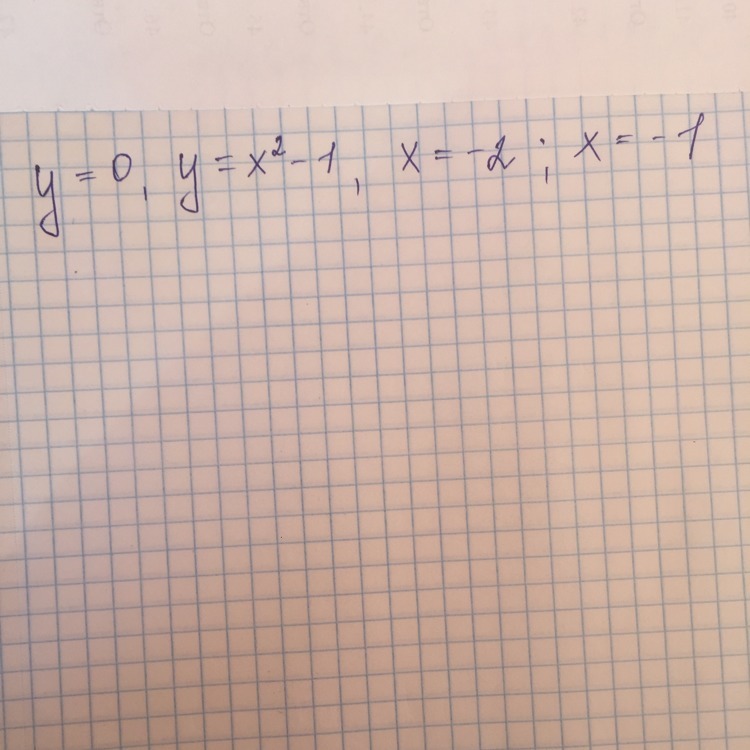 y = 0, y = x² - 1, x = -2 ; x = -1